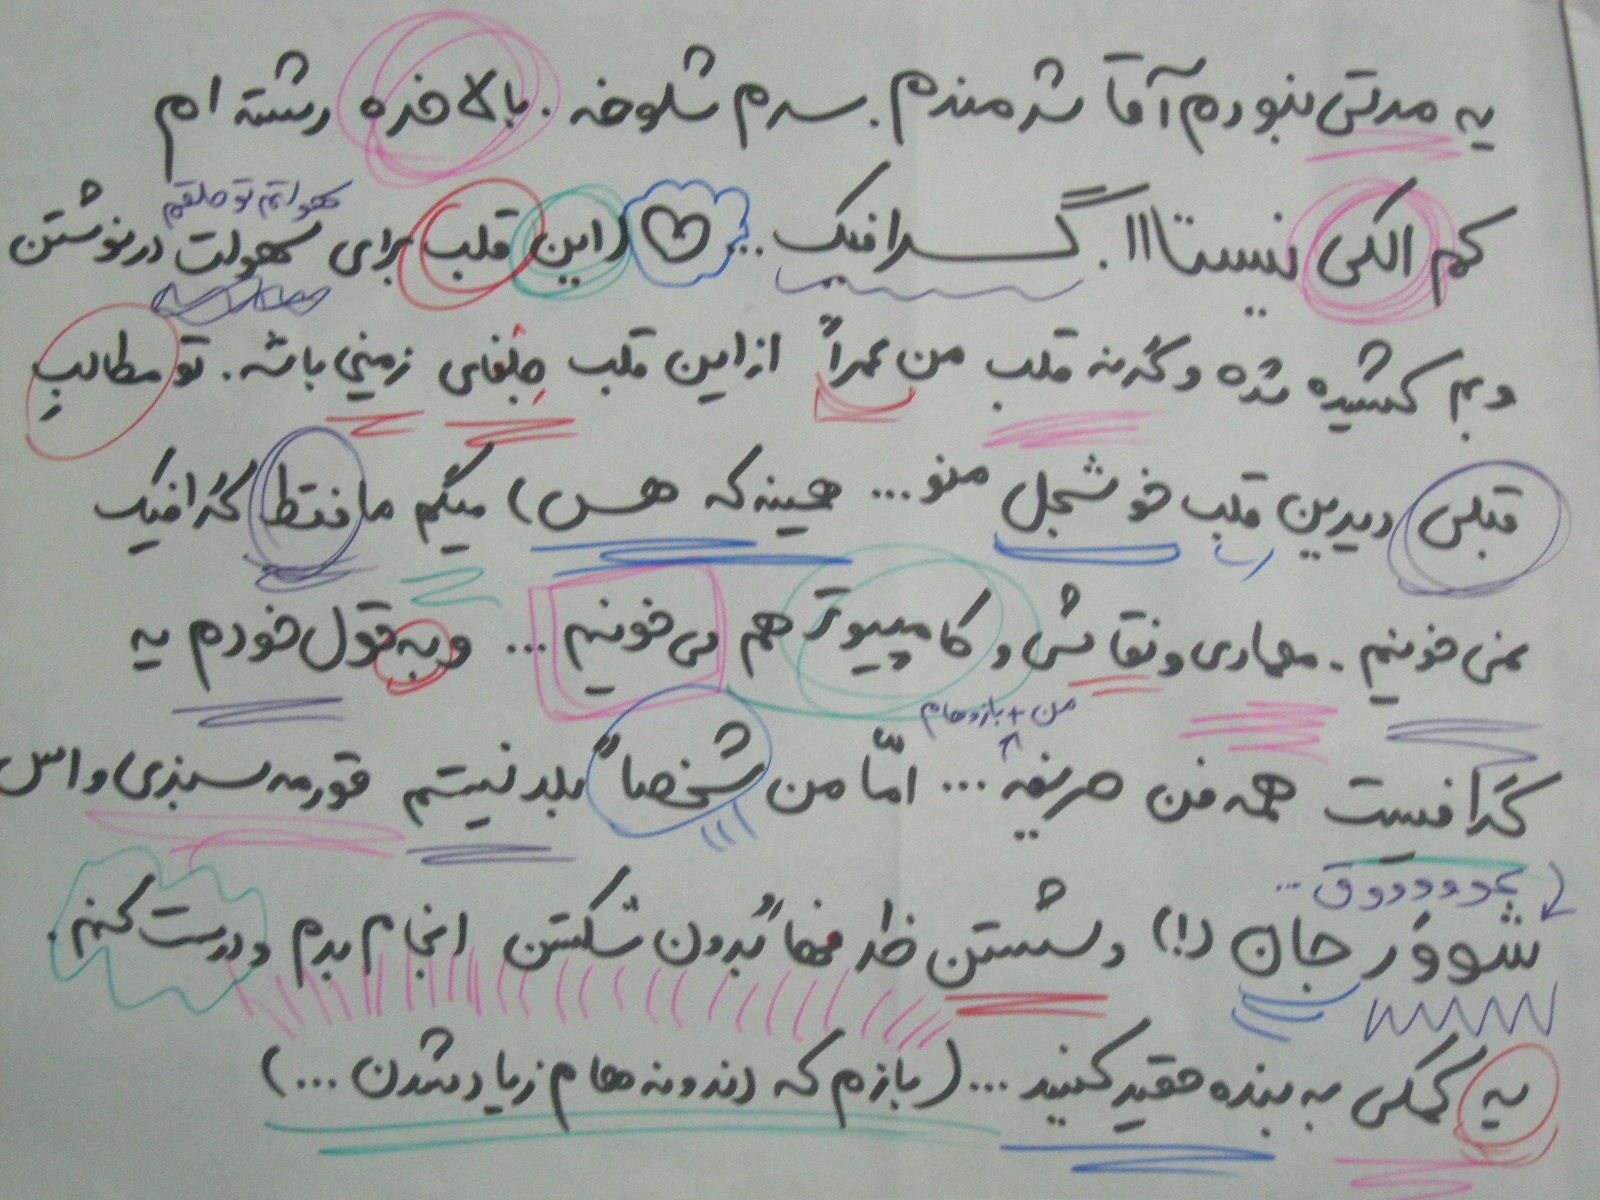 یه مدتی نبودم آقا شرمندم. سرم شلوخه. بالاخره رشته ام
کم الکی نیستااا. گرافیک ... ♡ (این قلب برای سهولت درنوشتن
هوا تو حلقم
وبم کشیده شده وگرنه قلب من عمراً ازاین قلب جلفای زمنی باشه. تو مطالبِ
قبلی دیدین قلب خوشجل منو ... همینه که هس) میگم ما فقط گرافیک
نمی خونیم. معماری و نقاشی و کامپیوتر هم می خونیم ... و به قول خودم یه
من + بازوهام
گرافیست همه فن حریفه ... امّا من شخصاً بلد نیستم قورمه سبزی واس
عووووووق ...
شووَر جان (!) و شستن ظرفها بُدون شکستن انجام بدم و درست کنم.
یه کمکی به بنده حقیر کنید ... (بازم که دندونه هام زیاد شدن ...)